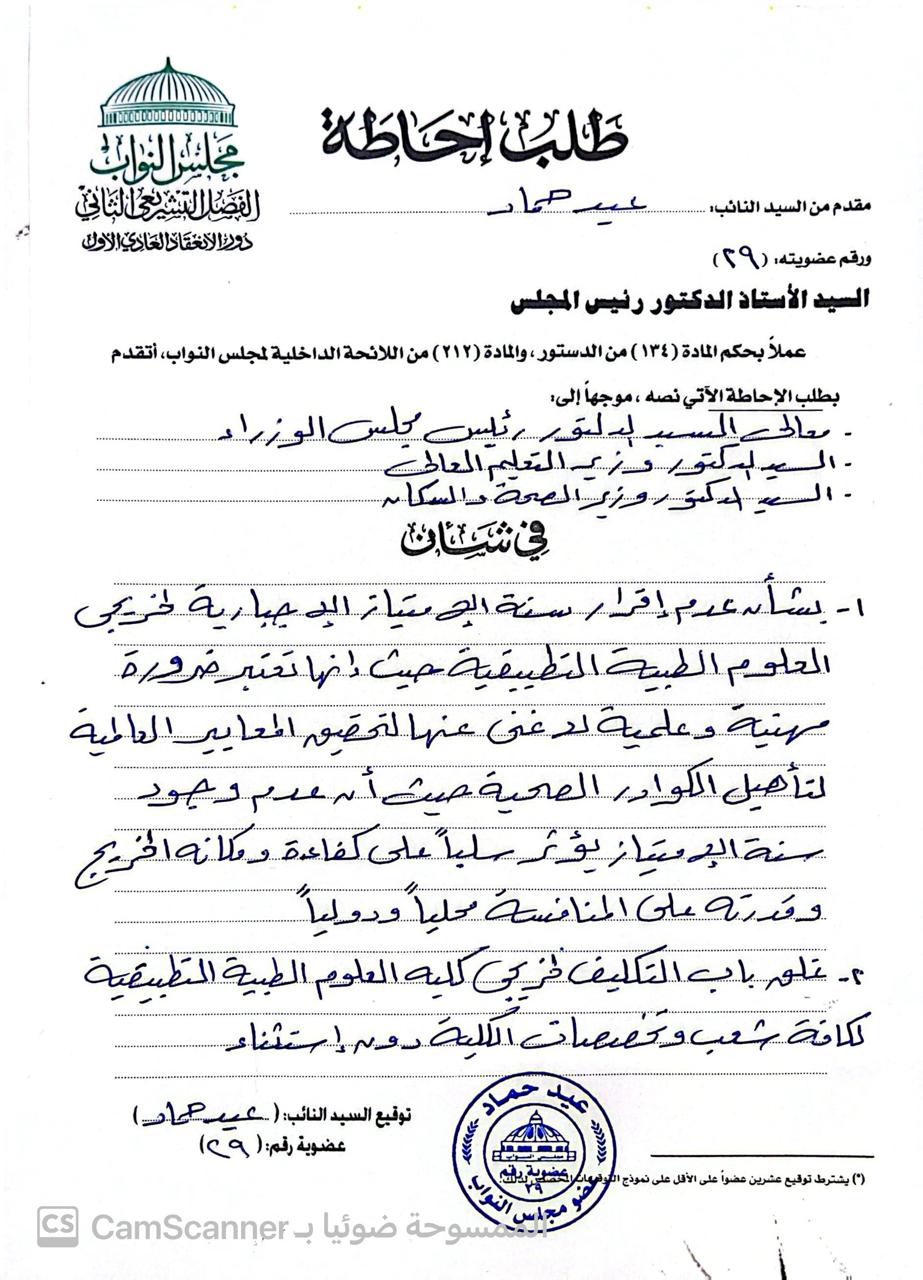 مجلس النواب
الفصل التشريعى الثانى
دور الانعقاد العادى الأول
طلب إحاطة
مقدم من السيد النائب: عيد حماد
ورقم عضويته: (٢٩)
السيد الأستاذ الدكتور رئيس المجلس
عملاً بحكم المادة (١٣٤) من الدستور، والمادة (٢١٢) من اللائحة الداخلية لمجلس النواب، أتقدم
بطلب الإحاطة الآتي نصه، موجهاً إلى:
- معالى السيد الدكتور رئيس مجلس الوزراء
- السيد الدكتور وزير التعليم العالى
- السيد الدكتور وزير الصحة والسكان
في شأن
١- بشأن عدم إقرار سنة الامتياز الإجبارية لخريجى
العلوم الطبية التطبيقية حيث إنها تعتبر ضرورة
مهنية وعلمية لا غنى عنها لتحقيق المعايير العالمية
لتأهيل الكوادر الصحية حيث أن عدم وجود
سنة الامتياز يؤثر سلباً على كفاءة ومكانه الخريج
وقدرته على المنافسة محلياً ودولياً
٢- غلق باب التكليف لخريجى كلية العلوم الطبية التطبيقية
لكافة شعب وتخصصات الكلية دون إستثناء
توقيع السيد النائب: (عيد حماد)
عضوية رقم: (٢٩)
عيد حماد
مجلس النواب
عضوية رقم
٢٩
عضو مجلس النواب
(*) يشترط توقيع عشرين عضواً على الأقل على نموذج التوقيعات المخصص لذلك.
CS CamScanner الممسوحة ضوئيا بـ